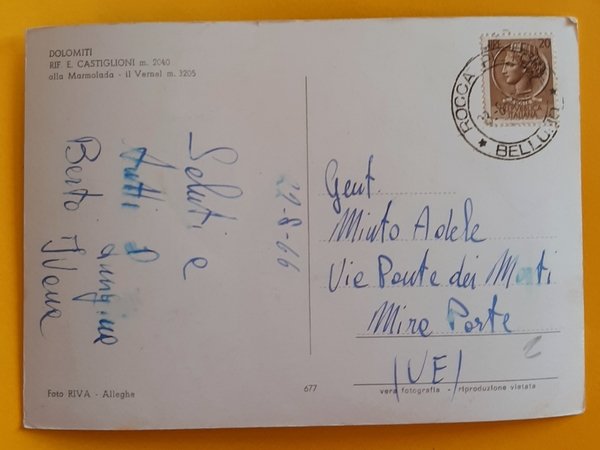 DOLOMITI
RIF. E. CASTIGLIONI m. 2040
alla Marmolada - il Vernel m. 3205
20
ITALIANA
ROCCA
BELLUNO
Saluti e
tutti
Berto
22-8-66
Gent.
Minto Adele
Via Ponte dei Morti
Mira Porte
(VE)
Foto RIVA - Alleghe
677
vera fotografia - riproduzione vietata